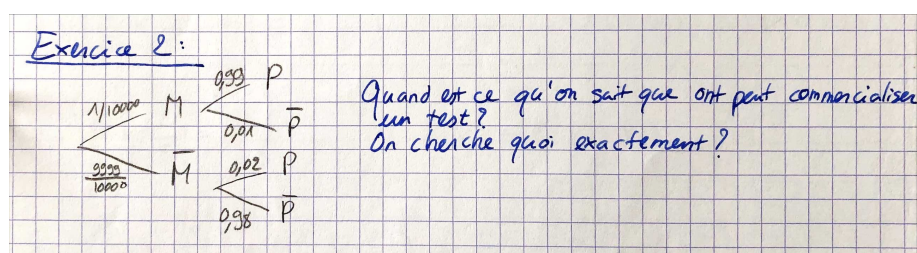 Exercice 2:
0,99 P
1/10000 M
0,01 P̅
9999/10000 M̅
0,02 P
0,98 P̅
Quand est ce qu'on sait que ont peut commercialiser
un test?
On cherche quoi exactement?